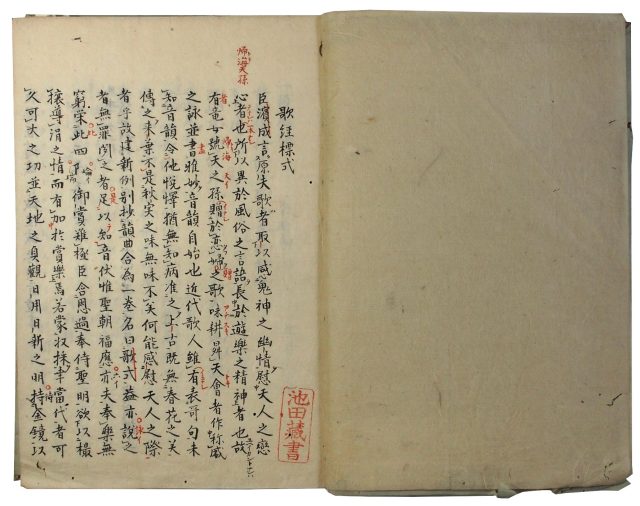 歌経標式
臣濱成言原夫歌者取以感鬼神之幽情慰天人之戀
心者也所以異於風俗之言語長於遊樂之精神者也故
有竜女號天之孫贈於恋婦之歌味耕昇天會者作称威
之詠並書雅妙音韻自始也近代歌人雖有表哥句未
知音韻令他悦懌猶無知病准之上古既無春花之美
傳之末葉不是秋実之味無味不美何能感慰天人之際
者乎故建新例別抄韻曲合為一巻名曰歌式蓋亦説之
者無罪聞之者足以知音伏惟聖朝福應亦夫奉樂無
窮榮此四御賞難極臣含恩遇奉侍聖明欲以撮
壤導涓之情而有加於賞樂焉若蒙収採幸當代者可
久可大之功並天地之貞觀日用日新之明持金鏡以
池田藏書